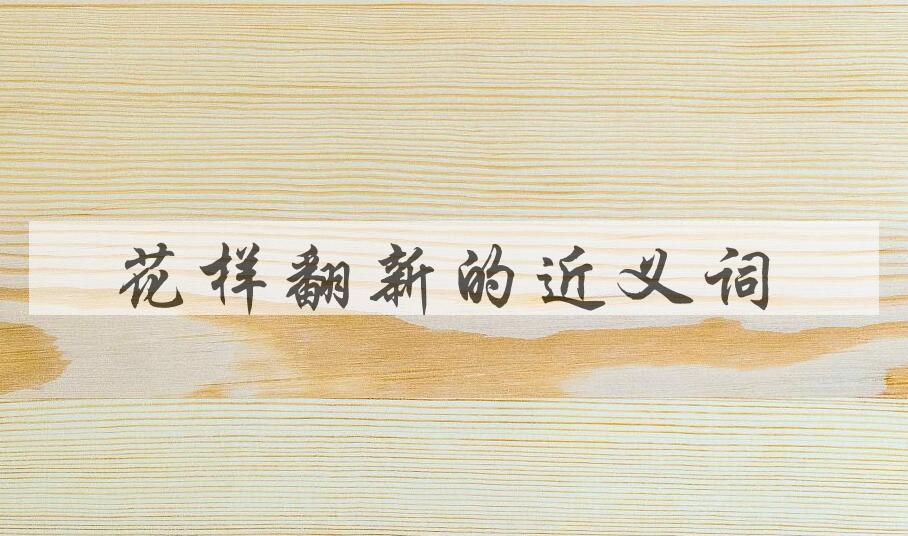 花样翻新的近义词